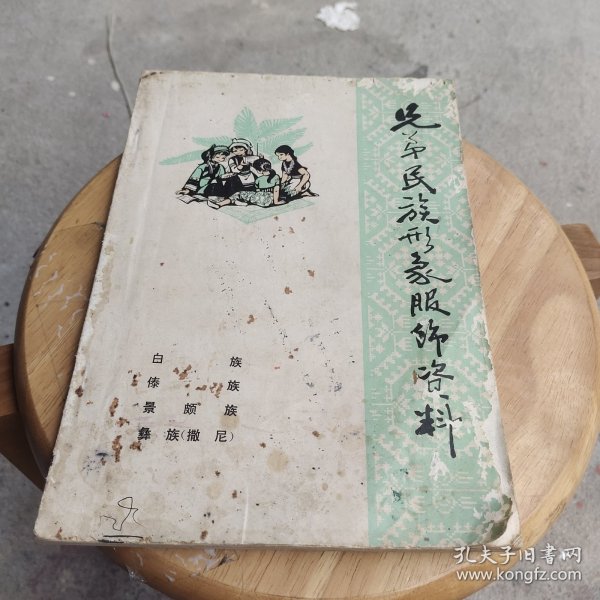 兄弟民族形象服饰资料
白族
傣族
景颇族
彝族(撒尼)
孔夫子旧书网
www.kongfz.com